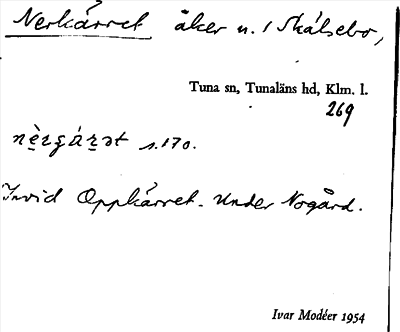 Nerkärret åker n. 1 Skälsebo,
Tuna sn, Tunaläns hd, Klm. l.
269
s. 170.
Invid Oppkärret. Under Nogård.
Ivar Modéer 1954